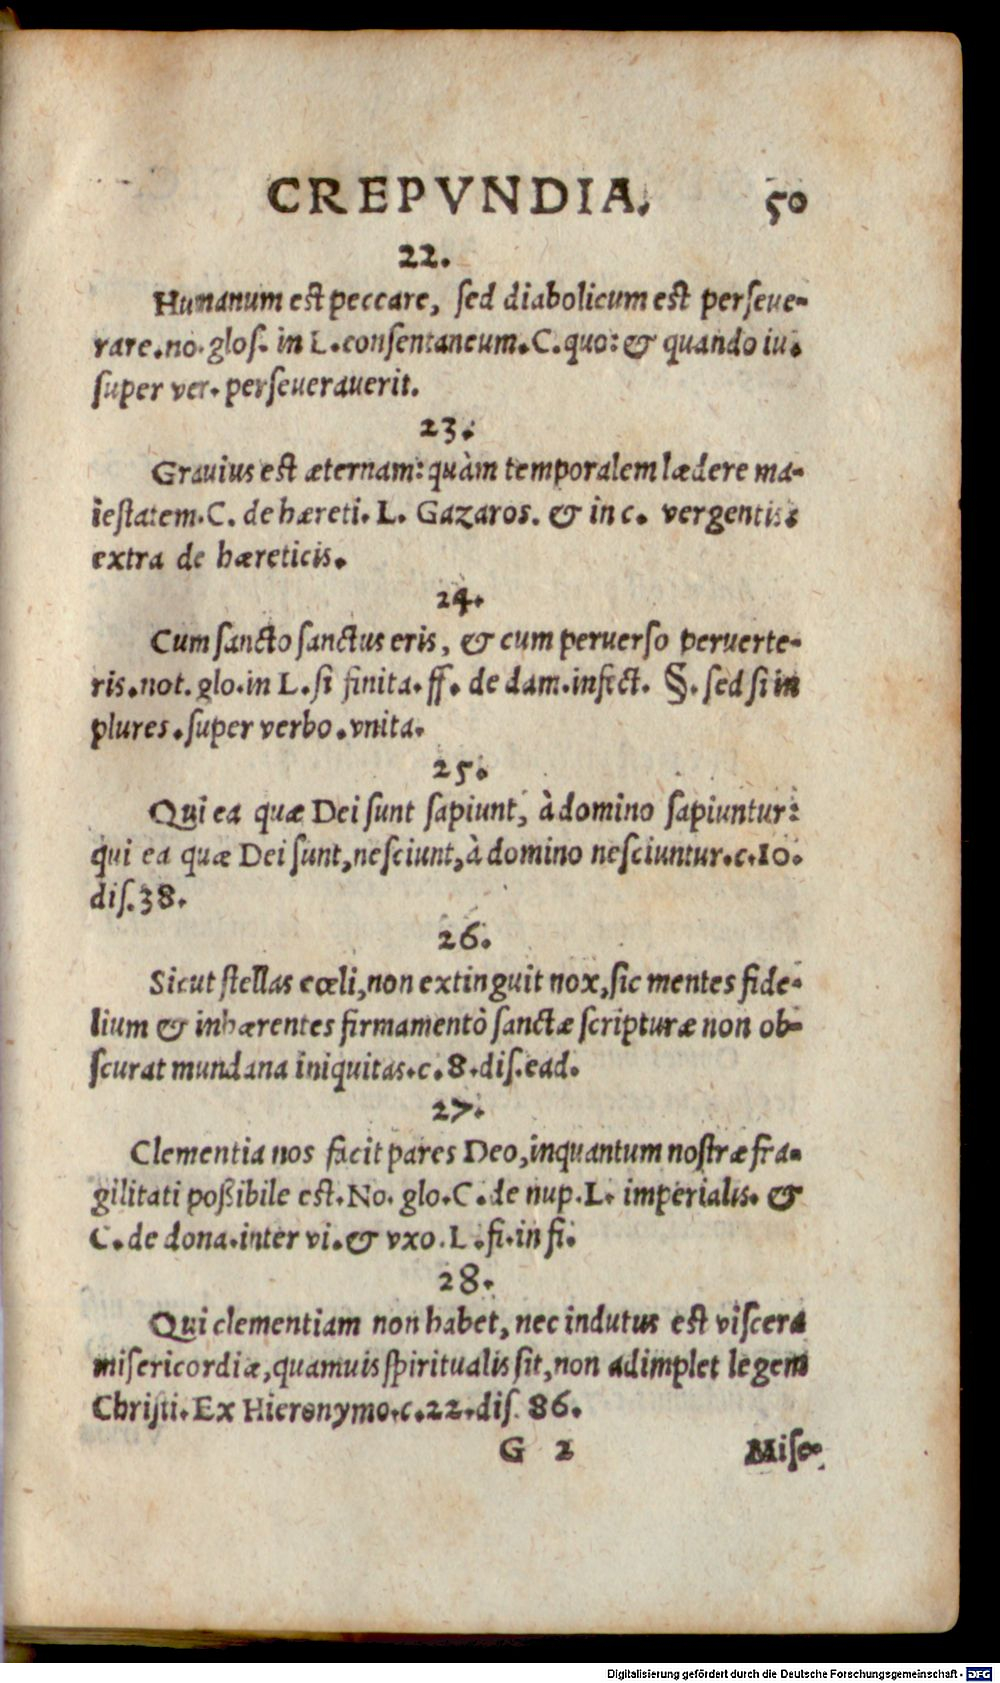 CREPVNDIA. 50
22.
Humanum est peccare, sed diabolicum est perseue-
rare. no. glos. in L. consentaneum. C. quo: & quando iu.
super ver. perseuerauerit.
23.
Grauius est æternam: quàm temporalem lædere ma-
iestatem. C. de hæreti. L. Gazaros. & in c. vergentis:
extra de hæreticis.
24.
Cum sancto sanctus eris, & cum peruerso peruerte-
ris. not. glo. in L. si finita. ff. de dam. infect. §. sed si in
plures. super verbo. vnita.
25.
Qui ea quæ Dei sunt sapiunt, à domino sapiuntur:
qui ea quæ Dei sunt, nesciunt, à domino nesciuntur. c. 10.
dis. 38.
26.
Sicut stellas cœli, non extinguit nox, sic mentes fide-
lium & inhærentes firmamentò sanctæ scripturæ non ob-
scurat mundana iniquitas. c. 8. dis. ead.
27.
Clementia nos facit pares Deo, inquantum nostræ fra-
gilitati poßibile est. No. glo. C. de nup. L. imperialis. &
C. de dona. inter vi. & vxo. L. fi. in fi.
28.
Qui clementiam non habet, nec indutus est viscera
misericordiæ, quamuis spiritualis sit, non adimplet legem
Christi. Ex Hieronymo. c. 22. dis. 86.
G 2 Mise-
Digitalisierung gefördert durch die Deutsche Forschungsgemeinschaft - DFG